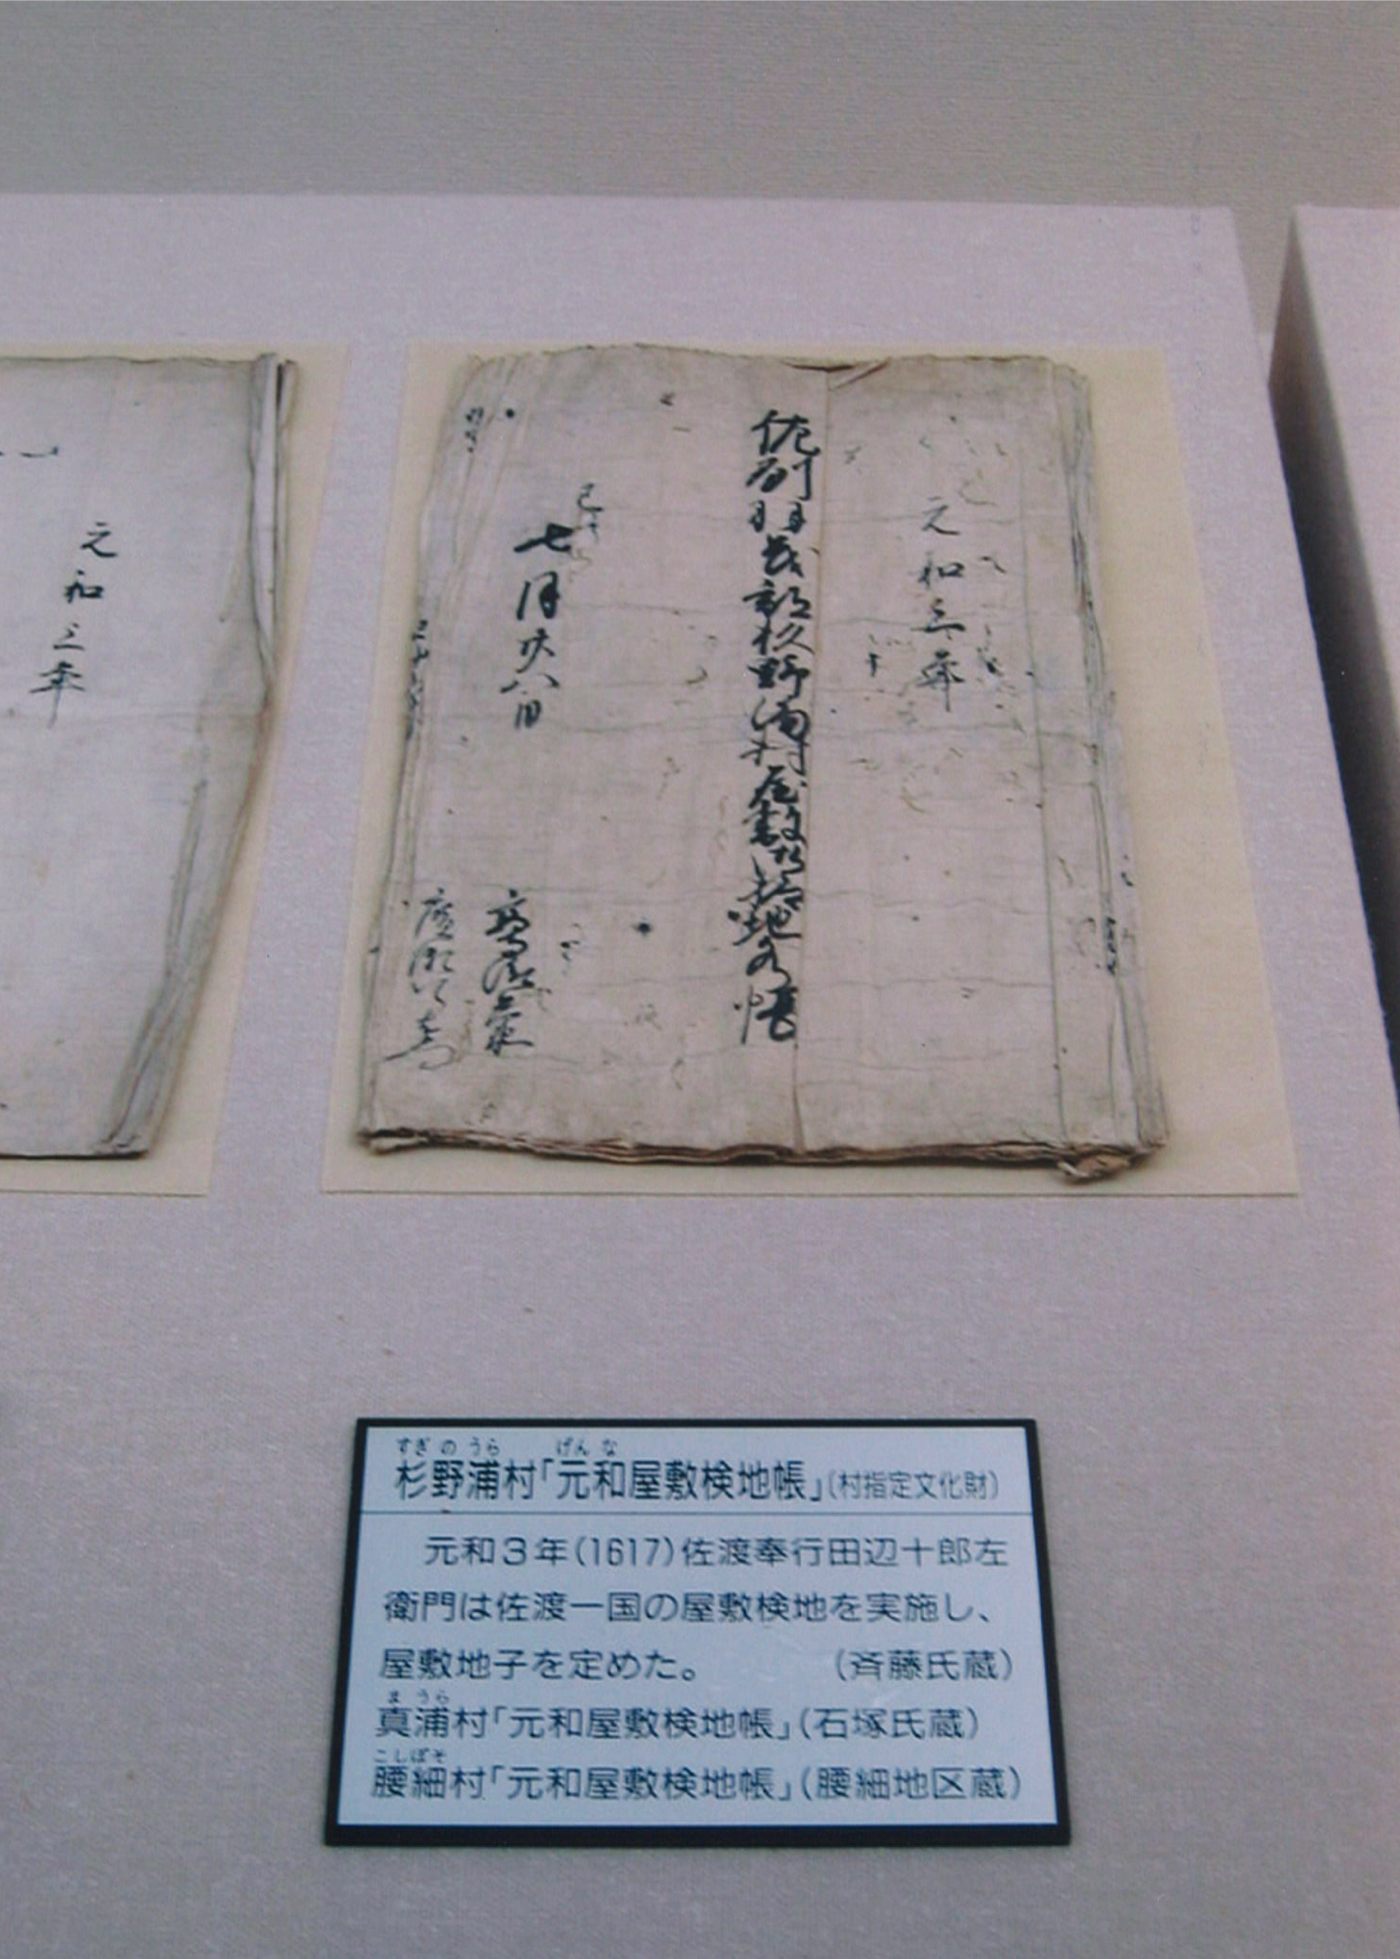 元和三年
佐州羽茂郡杉野浦村屋敷御検地水帳
七月廿八日
元和三年
すぎのうら げんな
杉野浦村「元和屋敷検地帳」(村指定文化財)
元和3年(1617)佐渡奉行田辺十郎左
衛門は佐渡一国の屋敷検地を実施し、
屋敷地子を定めた。 (斉藤氏蔵)
まうら
真浦村「元和屋敷検地帳」(石塚氏蔵)
こしぼそ
腰細村「元和屋敷検地帳」(腰細地区蔵)